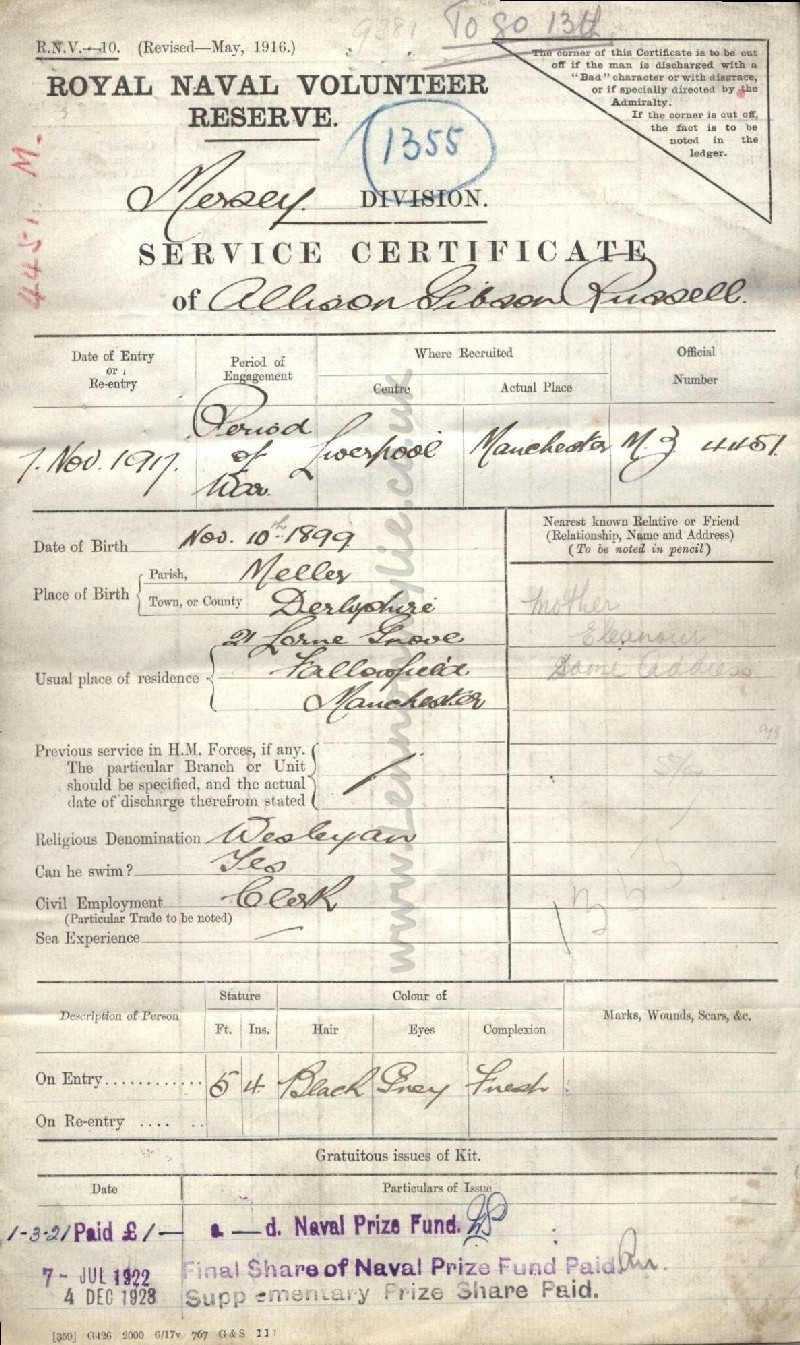 To go 13th
R.N.V.—10. (Revised—May, 1916.)
The corner of this Certificate is to be cut
off if the man is discharged with a
"Bad" character or with disgrace,
or if specially directed by the
Admiralty.
If the corner is cut off,
the fact is to be
noted in the
ledger.
ROYAL NAVAL VOLUNTEER
RESERVE.
1355
4451 M.
Mersey DIVISION.
SERVICE CERTIFICATE
of Allison Gibson Russell.
Date of Entry
or
Re-entry
Period of
Engagement
Where Recruited
Centre
Actual Place
Official
Number
7. Nov. 1917.
Period
of
War
Liverpool
Manchester
MZ 4451
Date of Birth Nov. 10th 1899
Place of Birth
Parish, Meller
Town, or County Derbyshire
Usual place of residence
21 Lorne Grove
Fallowfield
Manchester
Nearest known Relative or Friend
(Relationship, Name and Address)
(To be noted in pencil)
Mother
Eleanour
Same Address
Previous service in H.M. Forces, if any.
The particular Branch or Unit
should be specified, and the actual
date of discharge therefrom stated
Religious Denomination Wesleyan
Can he swim? Yes
Civil Employment Clerk
(Particular Trade to be noted)
Sea Experience —
1355
www.lennonwylie.co.uk
Description of Person
Stature
Ft. Ins.
Colour of
Hair Eyes Complexion
Marks, Wounds, Scars, &c.
On Entry............ 5 4 Black Grey Fresh
On Re-entry .... ....
Gratuitous issues of Kit.
Date
Particulars of Issue
1-3-21 Paid £1— s.—d. Naval Prize Fund.
7- JUL 1922 Final Share of Naval Prize Fund Paid.
4 DEC 1923 Supplementary Prize Share Paid.
[350] G426 2000 6/17v 767 G & S 11